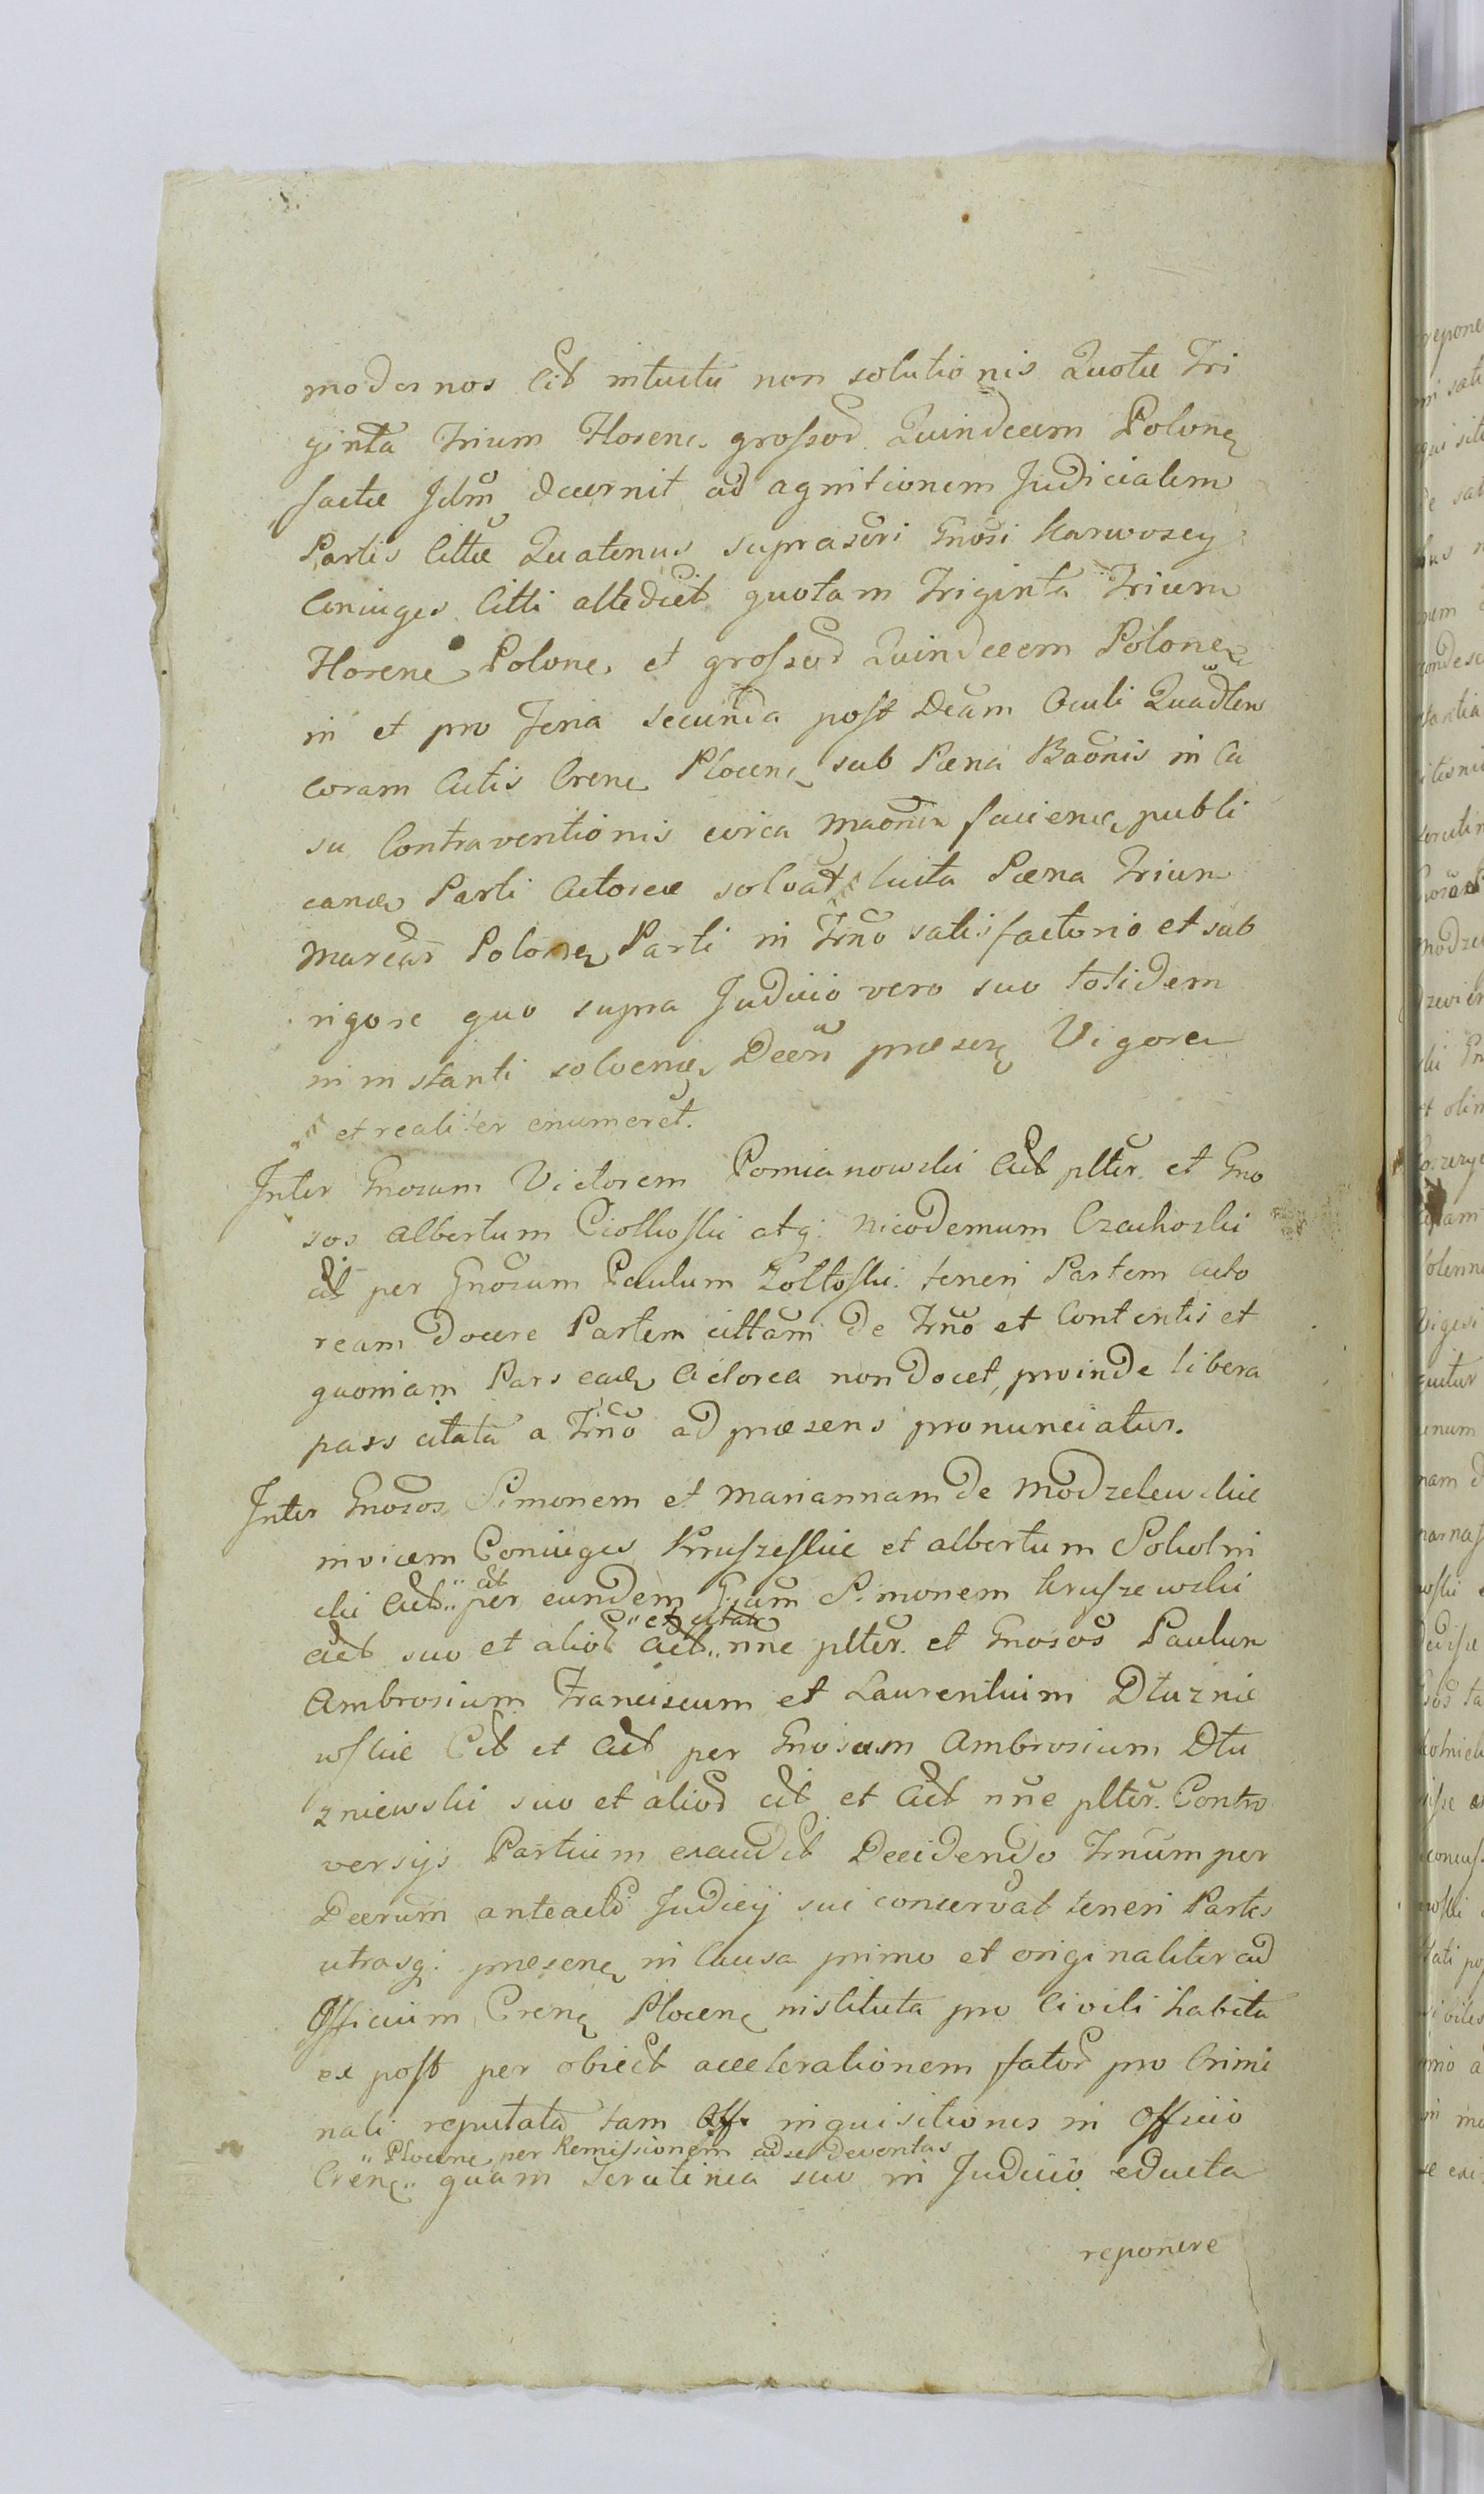 modernos Cit intuitu non solutionis Quotæ Tri
ginta Trium Florenc. grossoꝝ Quindecem Polonę
factæ Jdm̃ decernit ad agnitionem Judicialem
Partis Cittæ Quatenus suprascri Gnosi Karwoscy
Coniuges Citti attedict quotam Triginta Trium
Florenc Polonc. et grossoꝝ Quindecem Polonę
in et pro Feria secunda post Dcam Oculi Quadten
coram Actis Crenc Plocenc sub Pæna Baõnis in Ca
su Contraventionis circa Maõnem facienc publi
canda Parti Actoreæ solvat Lucta Pæna Trium
Marcar Polonę Parti in Trno satisfactorio et sub
rigore quo supra Judicio vero suo totidem
in instanti solvenc Decri præsenę Vigore
et realiter enumeret.
Inter Gnosum Victorem Pomianowski Act plter. et Gno
sos Albertum Ciołkoski atq: Nicodemum Czachoski
cit per Gnosum Paulum Zołtoski. teneri Partem Acto
ream docere Partem cittam de Trno et Contentis et
quoniam Pars eadę Actorea non docet, proinde libera
pars citata a Trno ad præsens pronunciatur.
Inter Gnosos Simonem et Mariannam de Modzelewskie
invicem Coniuges Kruszeskie et Albertum Sokolni
cki Act " cit " per eundem Gsum Simonem Kruszewski
Act suo et alioꝝ Act " et citat " nne plter. et Gnosos Paulum
Ambrosium Franciscum et Laurentium Dłuznie
wskie Cit et Act per Gnosum Ambrosium Dłu
zniewski suo et alioꝝ cit et Act nne plter. Contro
versijs Partium exaudit Decidendo Trnum per
Decrum anteact Judicij sui conservat teneri Partes
utrasq: præsenę in Causa primo et originaliter ad
Officium Crenę Plocenę instituta pro Civili habita
ex post per obiect accelerationem fatoꝝ pro Crimi
nali reputata tam inquisitiones in Officio
" Plocenc per Remissionem ad se deventas
Crenę " quam Scrutinia suo in Judicio educta
reponere